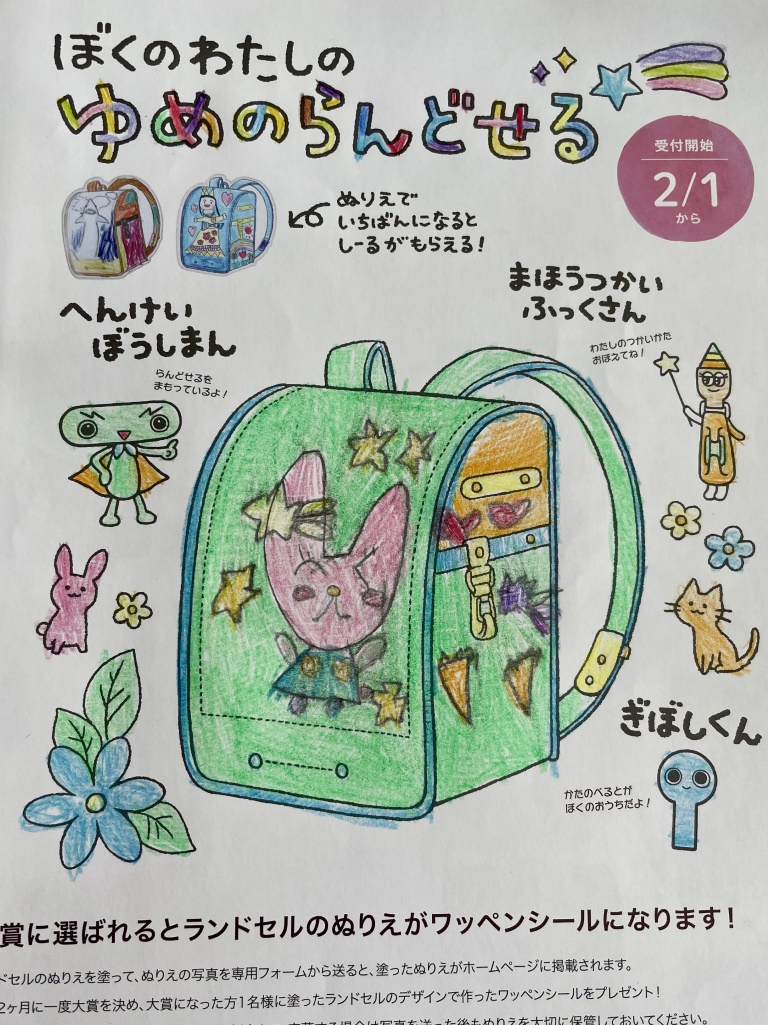 ぼくのわたしの
ゆめのらんどせる
受付開始
2/1
から
ぬりえで
いちばんになると
しーるがもらえる!
まほうつかい
ふっくさん
わたしのつかいかた
おぼえてね!
へんけい
ぼうしまん
らんどせるを
まもっているよ!
ぎぼしくん
かたのべるとが
ぼくのおうちだよ!
賞に選ばれるとランドセルのぬりえがワッペンシールになります!
ドセルのぬりえを塗って、ぬりえの写真を専用フォームから送ると、塗ったぬりえがホームページに掲載されます。
2ヶ月に一度大賞を決め、大賞になった方1名様に塗ったランドセルのデザインで作ったワッペンシールをプレゼント!
する場合は写真を送った後もぬりえを大切に保管しておいてください。